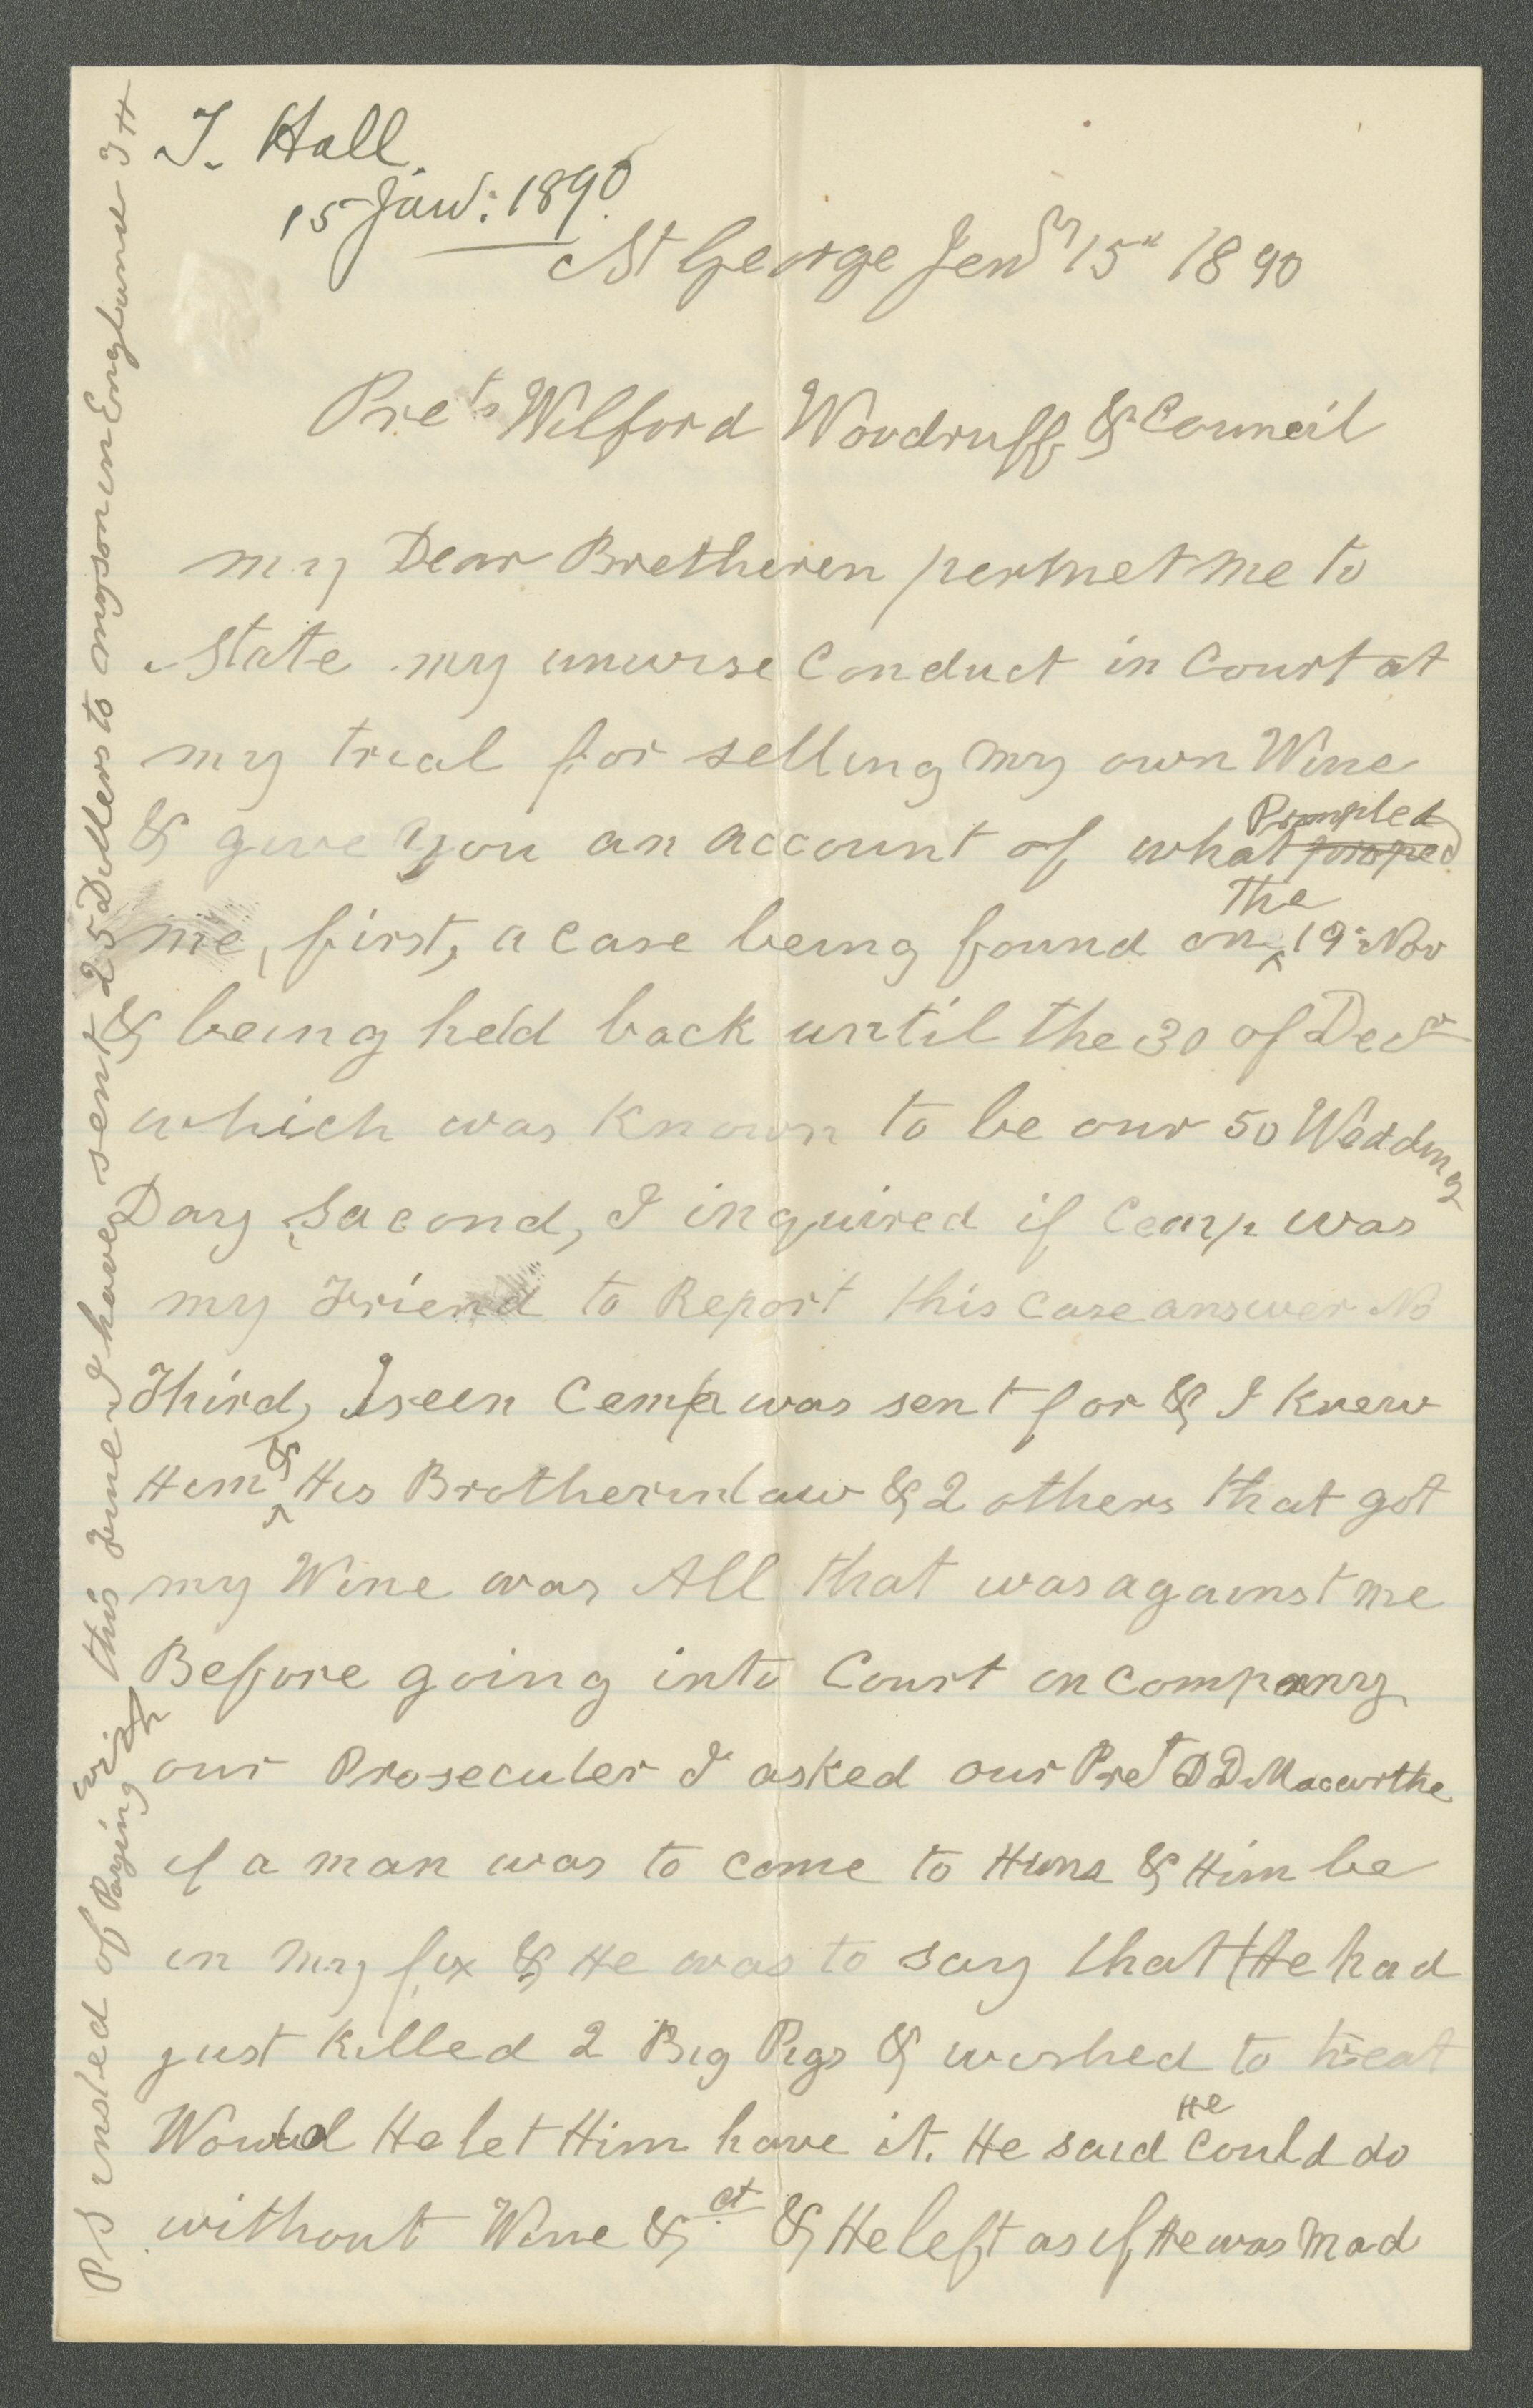 T. Hall.
15 Janʸ: 1890.
St George Jenʸ 15ᵗʰ 1890
Preᵗˢ Wilford Woodruff & Council
my Dear Bretheren permet me to
state my unwise Conduct in Court at
my trial for selling my own Wine
& give you an account of what Prompted
me, first, a case being found on The 19ᵗʰ Nov
& being held back until the 30 of Decʳ
which was Known to be our 50 Wedding
Day, Second, I inquired if Cemp was
my Friend to Report this case answer No
Third, I seen Cemp was sent for & I Knew
Him & His Brotherinlaw & 2 others that got
my Wine was All that was against me
Before going into Court in company
our Prosecuter I asked our Preᵗ D D Macarthe
if a man was to come to Him & Him be
in my fix & He was to say that He had
just Killed 2 Big Pigs & wished to treat
Would He let Him have it. He said He Could do
without Wine & ct & He left as if He was mad
P S insted of Paying with this Fine I have sent 25 Dollers to my son in England T H